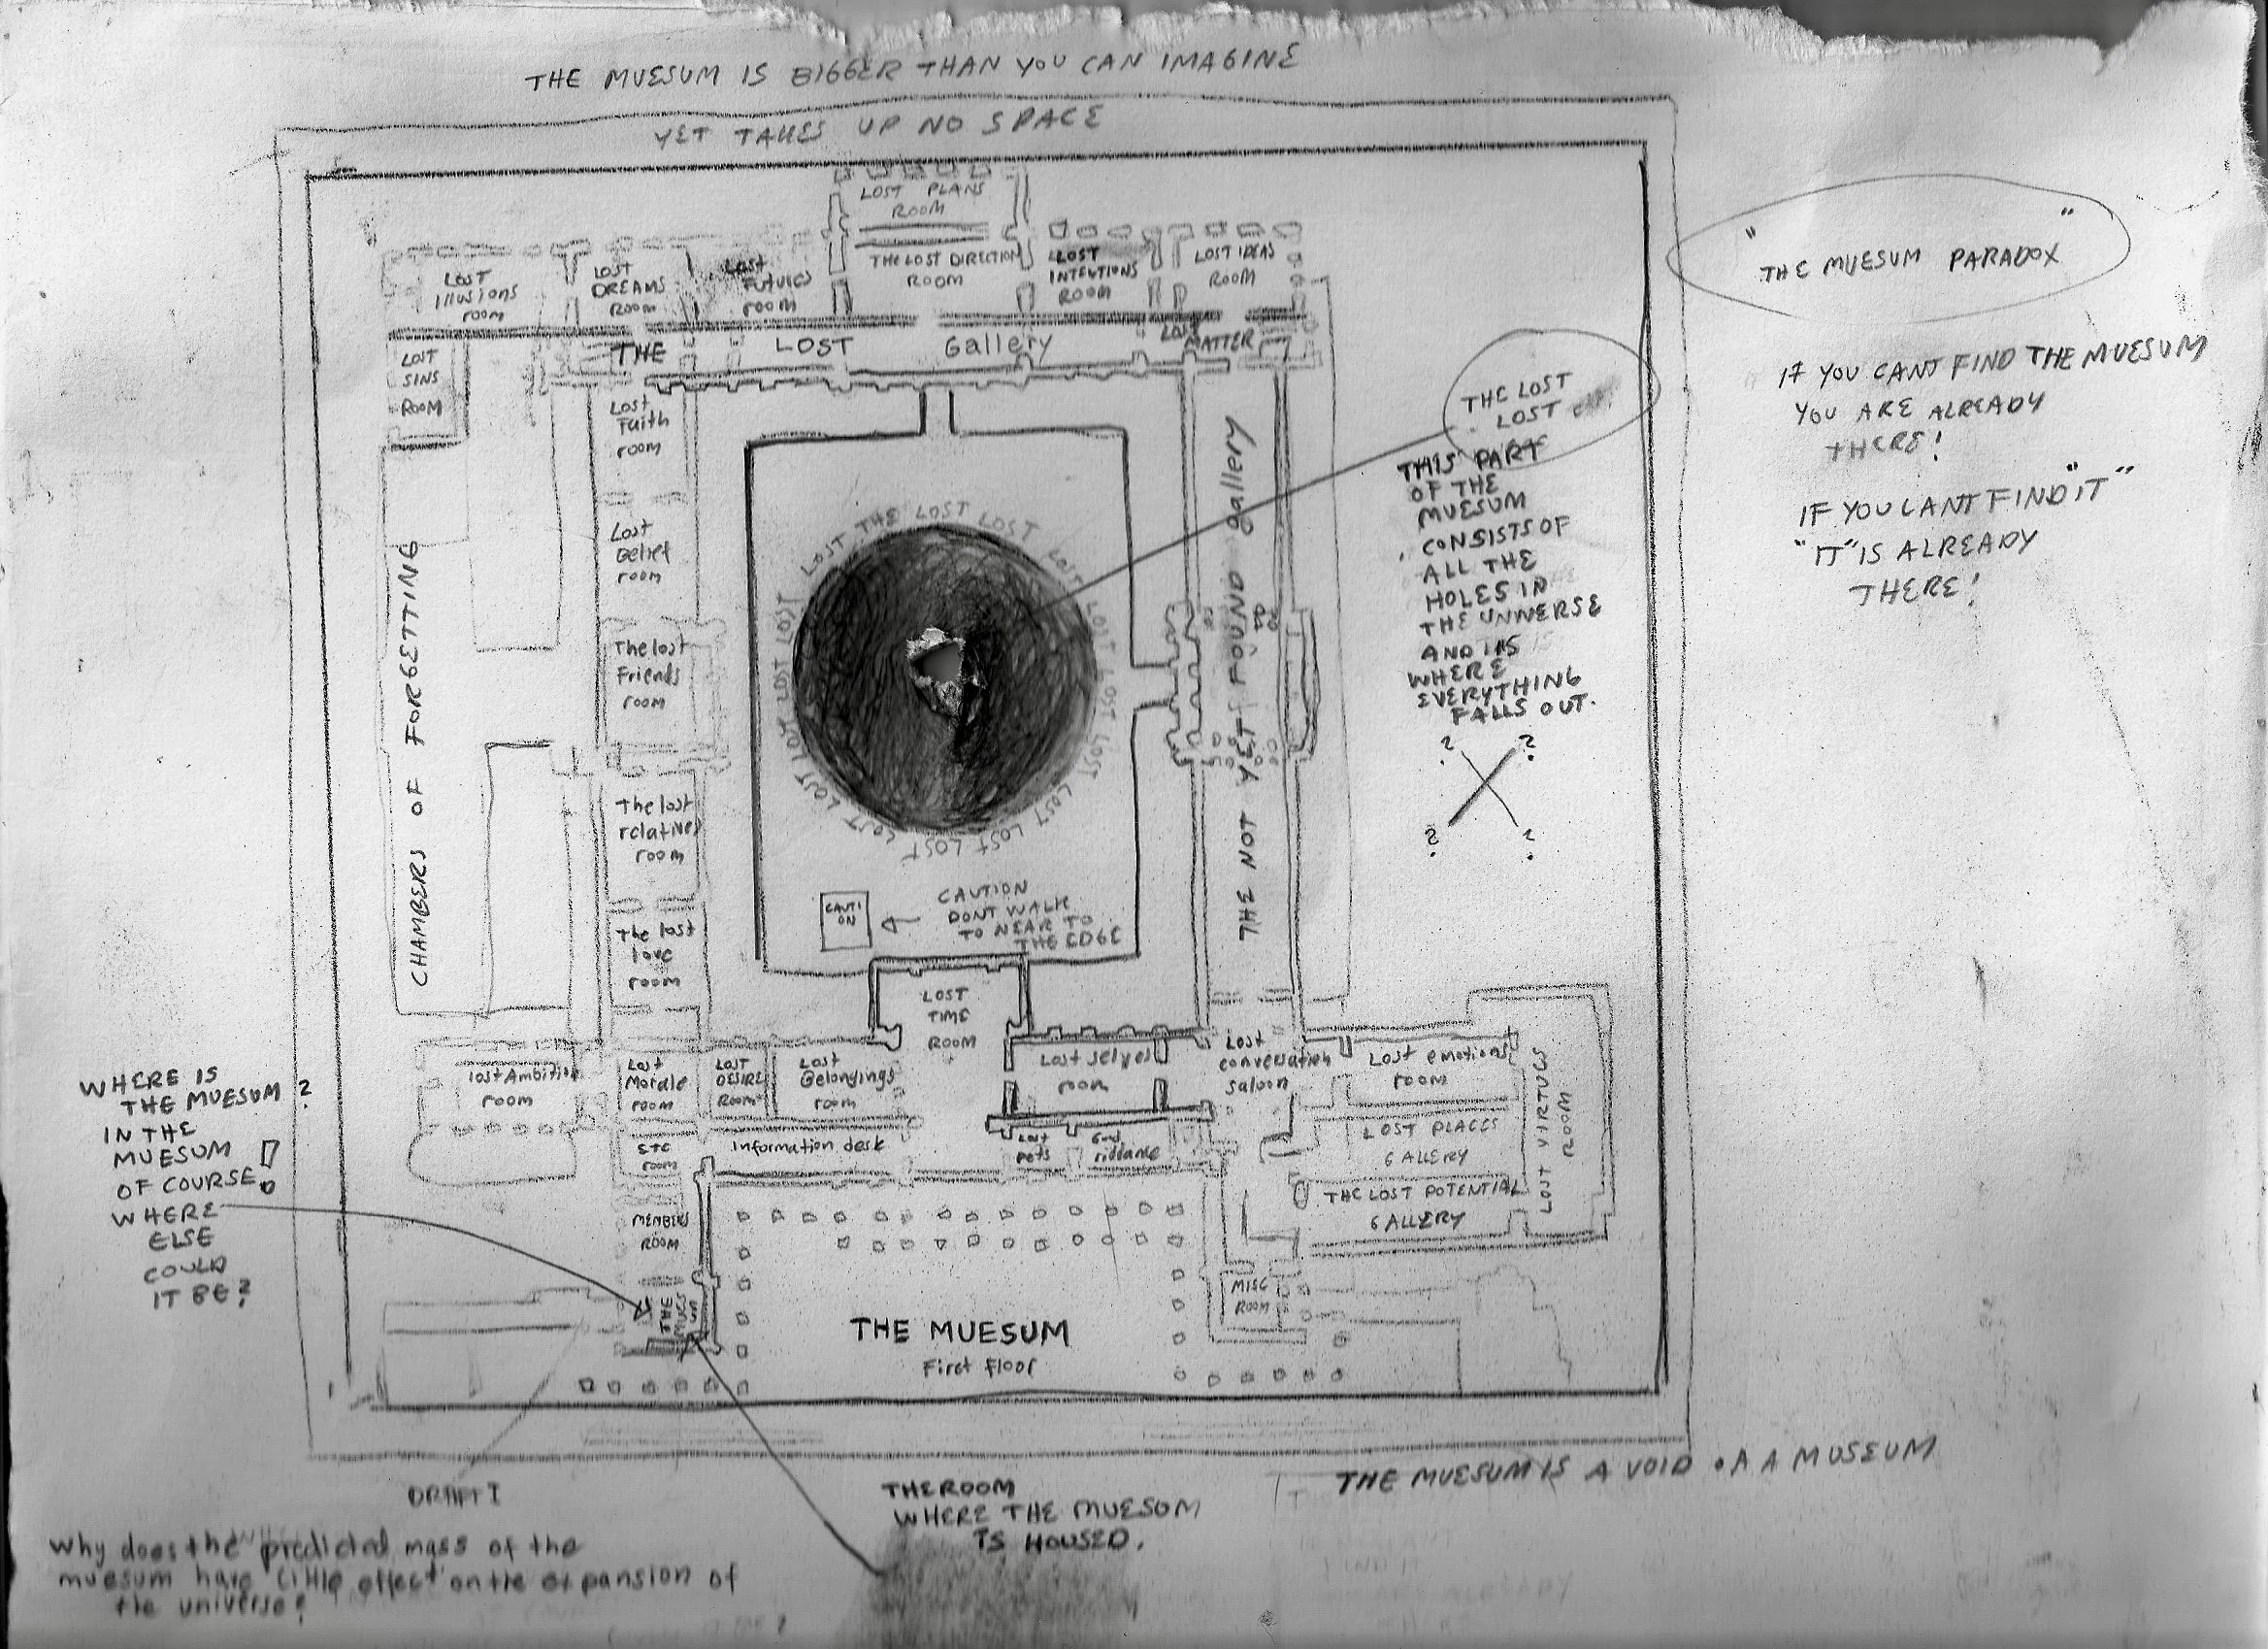 THE MUESUM IS BIGGER THAN YOU CAN IMAGINE
YET TAKES UP NO SPACE
LOST PLANS
ROOM
LOST
Illusions
room
LOST
DREAMS
ROOM
Lost
Futures
room
THE LOST DIRECTION
ROOM
LOST
INTENTIONS
ROOM
LOST IDEAS
ROOM
THE LOST Gallery
LOST
MATTER
LOST
SINS
ROOM
Lost
Faith
room
Lost
Belief
room
The lost
Friends
room
The lost
relatives
room
The lost
love
room
CHAMBERS OF FORGETTING
LOST THE LOST LOST LOST LOST LOST LOST LOST LOST LOST LOST LOST LOST LOST LOST LOST LOST
CAUTI
ON
CAUTION
DONT WALK
TO NEAR TO
THE EDGE
THE NOT YET FOUND gallery
THE LOST
LOST
THIS PART
OF THE
MUESUM
CONSISTS OF
ALL THE
HOLES IN
THE UNIVERSE
AND IS
WHERE
EVERYTHING
FALLS OUT.
? ?
? ?
"THE MUESUM PARADOX"
IF YOU CANT FIND THE MUESUM
YOU ARE ALREADY
THERE!
IF YOU CANT FIND "IT"
"IT" IS ALREADY
THERE!
LOST
TIME
ROOM
lost Ambition
room
Lost
Morale
room
LOST
DESIRE
ROOM
Lost
Belongings
room
Lost selves
room
Lost
conversation
saloon
Lost emotions
room
LOST VIRTUES
ROOM
ETC
room
Information desk
Lost
pets
Good
riddance
LOST PLACES
GALLERY
THE LOST POTENTIAL
GALLERY
MEMBERS
ROOM
MISC
ROOM
THE
MUESUM
THE MUESUM
First Floor
WHERE IS
THE MUESUM?
IN THE
MUESUM
OF COURSE!
WHERE
ELSE
COULD
IT BE?
DRAFT I
THE ROOM
WHERE THE MUESUM
IS HOUSED.
THE MUESUM IS A VOID . A A MUSEUM
Why does the predicted mass of the
muesum have little effect on the expansion of
the universe?